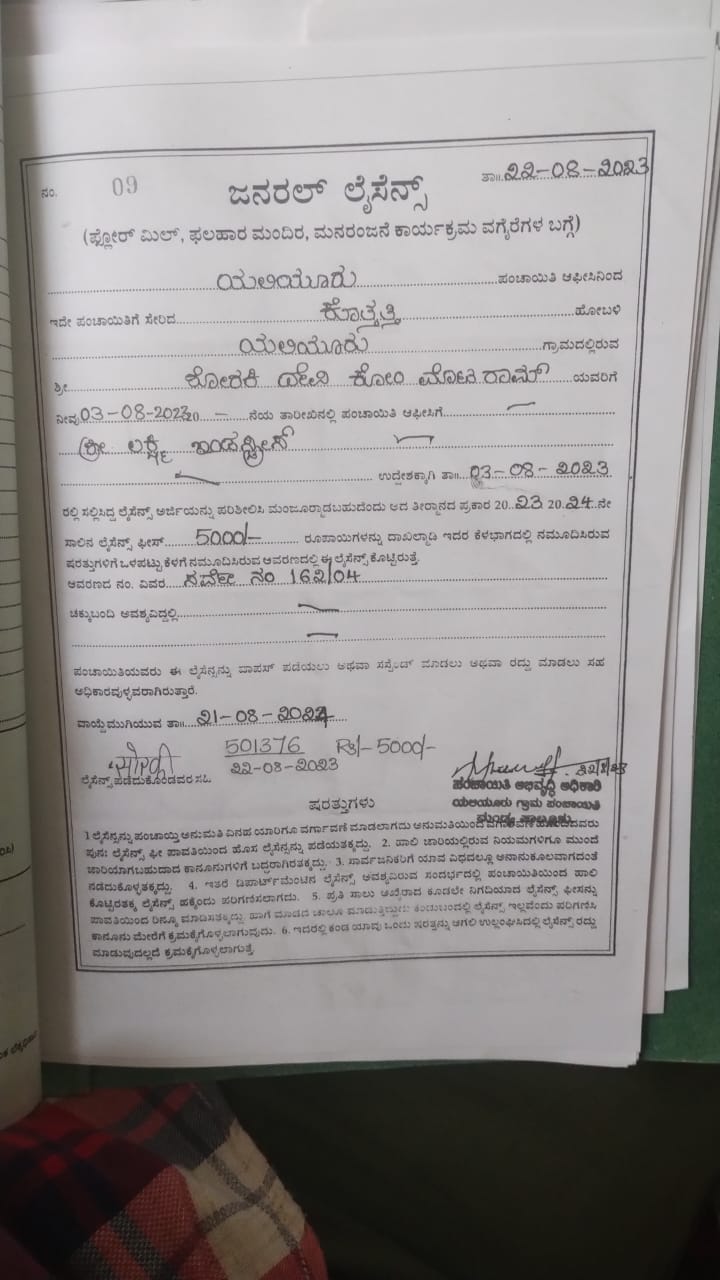 ನಂ. 09 ಜನರಲ್ ಲೈಸೆನ್ಸ್ ತಾ॥ 22-08-2023
(ಫ್ಲೋರ್ ಮಿಲ್, ಫಲಹಾರ ಮಂದಿರ, ಮನರಂಜನೆ ಕಾರ್ಯಕ್ರಮ ವಗೈರೆಗಳ ಬಗ್ಗೆ)
ಯಲಿಯೂರು ಪಂಚಾಯಿತಿ ಆಫೀಸಿನಿಂದ
ಇದೇ ಪಂಚಾಯಿತಿಗೆ ಸೇರಿದ ಕೊತ್ತತ್ತಿ ಹೋಬಳಿ
ಯಲಿಯೂರು ಗ್ರಾಮದಲ್ಲಿರುವ
ಶ್ರೀ ದೇವಿ ಕೋಂ ರಾಮ್ ಯವರಿಗೆ
ನೀವು 03-08-2023 20 — ನೆಯ ತಾರೀಖಿನಲ್ಲಿ ಪಂಚಾಯಿತಿ ಆಫೀಸಿಗೆ
ಶ್ರೀ ಲಕ್ಷ್ಮಿ
ಉದ್ದೇಶಕ್ಕಾಗಿ ತಾ॥ 03-08-2023
ರಲ್ಲಿ ಸಲ್ಲಿಸಿದ್ದ ಲೈಸೆನ್ಸ್ ಅರ್ಜಿಯನ್ನು ಪರಿಶೀಲಿಸಿ ಮಂಜೂರ್ಮಾಡಬಹುದೆಂದು ಆದ ತೀರ್ಮಾನದ ಪ್ರಕಾರ 20 23 20 24 ನೇ
ಸಾಲಿನ ಲೈಸೆನ್ಸ್ ಫೀಸ್ 5000/- ರೂಪಾಯಿಗಳನ್ನು ದಾಖಲ್ಮಾಡಿ ಇದರ ಕೆಳಭಾಗದಲ್ಲಿ ನಮೂದಿಸಿರುವ
ಷರತ್ತುಗಳಿಗೆ ಒಳಪಟ್ಟು ಕೆಳಗೆ ನಮೂದಿಸಿರುವ ಆವರಣದಲ್ಲಿ ಈ ಲೈಸೆನ್ಸ್ ಕೊಟ್ಟಿರುತ್ತೆ.
ಆವರಣದ ನಂ. ವಿವರ ಸರ್ವೇ ನಂ 162/04
ಚಕ್ಕುಬಂದಿ ಅವಶ್ಯವಿದ್ದಲ್ಲಿ
ಪಂಚಾಯಿತಿಯವರು ಈ ಲೈಸೆನ್ಸನ್ನು ವಾಪಸ್ ಪಡೆಯಲು ಅಥವಾ ಸಸ್ಪೆಂಡ್ ಮಾಡಲು ಅಥವಾ ರದ್ದು ಮಾಡಲು ಸಹ
ಅಧಿಕಾರವುಳ್ಳವರಾಗಿರುತ್ತಾರೆ.
ವಾಯ್ದೆಮುಗಿಯುವ ತಾ॥ 21-08-2024
501376 Rs/- 5000/-
22-08-2023 22/8/23
ಲೈಸೆನ್ಸ್ ಪಡೆದುಕೊಂಡವರ ಸಹಿ. ಪಂಚಾಯಿತಿ ಅಭಿವೃದ್ಧಿ ಅಧಿಕಾರಿ
ಷರತ್ತುಗಳು ಯಲಿಯೂರು ಗ್ರಾಮ ಪಂಚಾಯಿತಿ
ಮಂಡ್ಯ ತಾಲ್ಲೂಕು
1 ಲೈಸೆನ್ಸನ್ನು ಪಂಚಾಯ್ತಿ ಅನುಮತಿ ವಿನಹ ಯಾರಿಗೂ ವರ್ಗಾವಣೆ ಮಾಡಲಾಗದು ಅನುಮತಿಯಿಂದ
ಪುನಃ ಲೈಸೆನ್ಸ್ ಫೀ ಪಾವತಿಯಿಂದ ಹೊಸ ಲೈಸೆನ್ಸನ್ನು ಪಡೆಯತಕ್ಕದ್ದು. 2. ಹಾಲಿ ಜಾರಿಯಲ್ಲಿರುವ ನಿಯಮಗಳಿಗೂ ಮುಂದೆ
ಜಾರಿಯಾಗಬಹುದಾದ ಕಾನೂನುಗಳಿಗೆ ಬದ್ಧರಾಗಿರತಕ್ಕದ್ದು. 3. ಸಾರ್ವಜನಿಕರಿಗೆ ಯಾವ ವಿಧದಲ್ಲೂ ಅನಾನುಕೂಲವಾಗದಂತೆ
ನಡೆದುಕೊಳ್ಳತಕ್ಕದ್ದು. 4. ಇತರೆ ಡಿಪಾರ್ಟ್‌ಮೆಂಟಿನ ಲೈಸೆನ್ಸ್ ಅವಶ್ಯವಿರುವ ಸಂದರ್ಭದಲ್ಲಿ ಪಂಚಾಯಿತಿಯಿಂದ ಹಾಲಿ
ಕೊಟ್ಟಿರತಕ್ಕ ಲೈಸೆನ್ಸ್ ಹಕ್ಕೆಂದು ಪರಿಗಣಿಸಲಾಗದು. 5. ಪ್ರತಿ ಸಾಲು ಆಖೈರಾದ ಕೂಡಲೇ ನಿಗದಿಯಾದ ಲೈಸೆನ್ಸ್ ಫೀಸನ್ನು
ಪಾವತಿಯಿಂದ ರಿನ್ಯೂ ಮಾಡಿಸತಕ್ಕದ್ದು. ಹಾಗೆ ಮಾಡದೆ ಚಾಲೂ ಕಂಡುಬಂದಲ್ಲಿ ಲೈಸೆನ್ಸ್ ಇಲ್ಲವೆಂದು ಪರಿಗಣಿಸಿ
ಕಾನೂನು ಮೇರೆಗೆ ಕ್ರಮಕೈಗೊಳ್ಳಲಾಗುವುದು. 6. ಇದರಲ್ಲಿ ಕಂಡ ಯಾವು ಒಂದು ಷರತ್ತನ್ನು ಆಗಲಿ ಉಲ್ಲಂಘಿಸಿದಲ್ಲಿ ಲೈಸೆನ್ಸ್ ರದ್ದು
ಮಾಡುವುದಲ್ಲದೆ ಕ್ರಮಕೈಗೊಳ್ಳಲಾಗುತ್ತೆ.